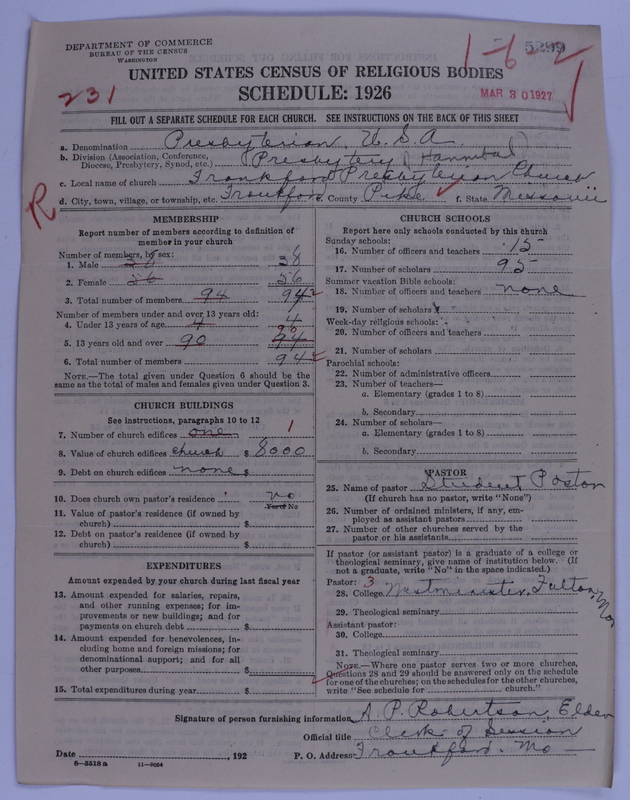 DEPARTMENT OF COMMERCE
BUREAU OF THE CENSUS
WASHINGTON
1-6-2 5299
UNITED STATES CENSUS OF RELIGIOUS BODIES
231
SCHEDULE: 1926
MAR 30 1927
FILL OUT A SEPARATE SCHEDULE FOR EACH CHURCH. SEE INSTRUCTIONS ON THE BACK OF THIS SHEET
a. Denomination Presbyterian, U.S.A.
b. Division (Association, Conference, Diocese, Presbytery, Synod, etc.) Presbytery (Hannibal)
c. Local name of church Frankford Presbyterian Church
R
d. City, town, village, or township, etc. Frankford e. County Pike f. State Missouri
MEMBERSHIP
Report number of members according to definition of
member in your church
Number of members, by sex:
1. Male 38 38
2. Female 56 56
3. Total number of members 94 94
Number of members under and over 13 years old:
4. Under 13 years of age 4 4
5. 13 years old and over 90 94 90
6. Total number of members 94
NOTE.—The total given under Question 6 should be the
same as the total of males and females given under Question 3.
CHURCH BUILDINGS
See instructions, paragraphs 10 to 12
7. Number of church edifices one 1
8. Value of church edifices church $ 8000
9. Debt on church edifices none $
10. Does church own pastor's residence no
Yes or No
11. Value of pastor's residence (if owned by
church) $
12. Debt on pastor's residence (if owned by
church) $
EXPENDITURES
Amount expended by your church during last fiscal year
13. Amount expended for salaries, repairs,
and other running expenses; for im-
provements or new buildings; and for
payments on church debt $
14. Amount expended for benevolences, in-
cluding home and foreign missions; for
denominational support; and for all
other purposes $
15. Total expenditures during year $
CHURCH SCHOOLS
Report here only schools conducted by this church
Sunday schools:
16. Number of officers and teachers 15
17. Number of scholars 95
Summer vacation Bible schools:
18. Number of officers and teachers none
19. Number of scholars
Week-day religious schools:
20. Number of officers and teachers
21. Number of scholars
Parochial schools:
22. Number of administrative officers
23. Number of teachers—
a. Elementary (grades 1 to 8)
b. Secondary
24. Number of scholars—
a. Elementary (grades 1 to 8)
b. Secondary
PASTOR
25. Name of pastor Student Pastor
(If church has no pastor, write "None")
26. Number of ordained ministers, if any, em-
ployed as assistant pastors
27. Number of other churches served by the
pastor or his assistants
If pastor (or assistant pastor) is a graduate of a college or
theological seminary, give name of institution below. (If
not a graduate, write "No" in the space indicated.)
Pastor: 3
28. College Westminister, Fulton, Mo
29. Theological seminary
Assistant pastor:
30. College
31. Theological seminary
NOTE.—Where one pastor serves two or more churches,
Questions 28 and 29 should be answered only on the schedule
for one of the churches; on the schedules for the other churches,
write "See schedule for church."
Signature of person furnishing information A. P. Robertson, Elder
Official title Clerk of Session
Date , 192 P. O. Address Frankford, Mo
8-5518a 11-9054